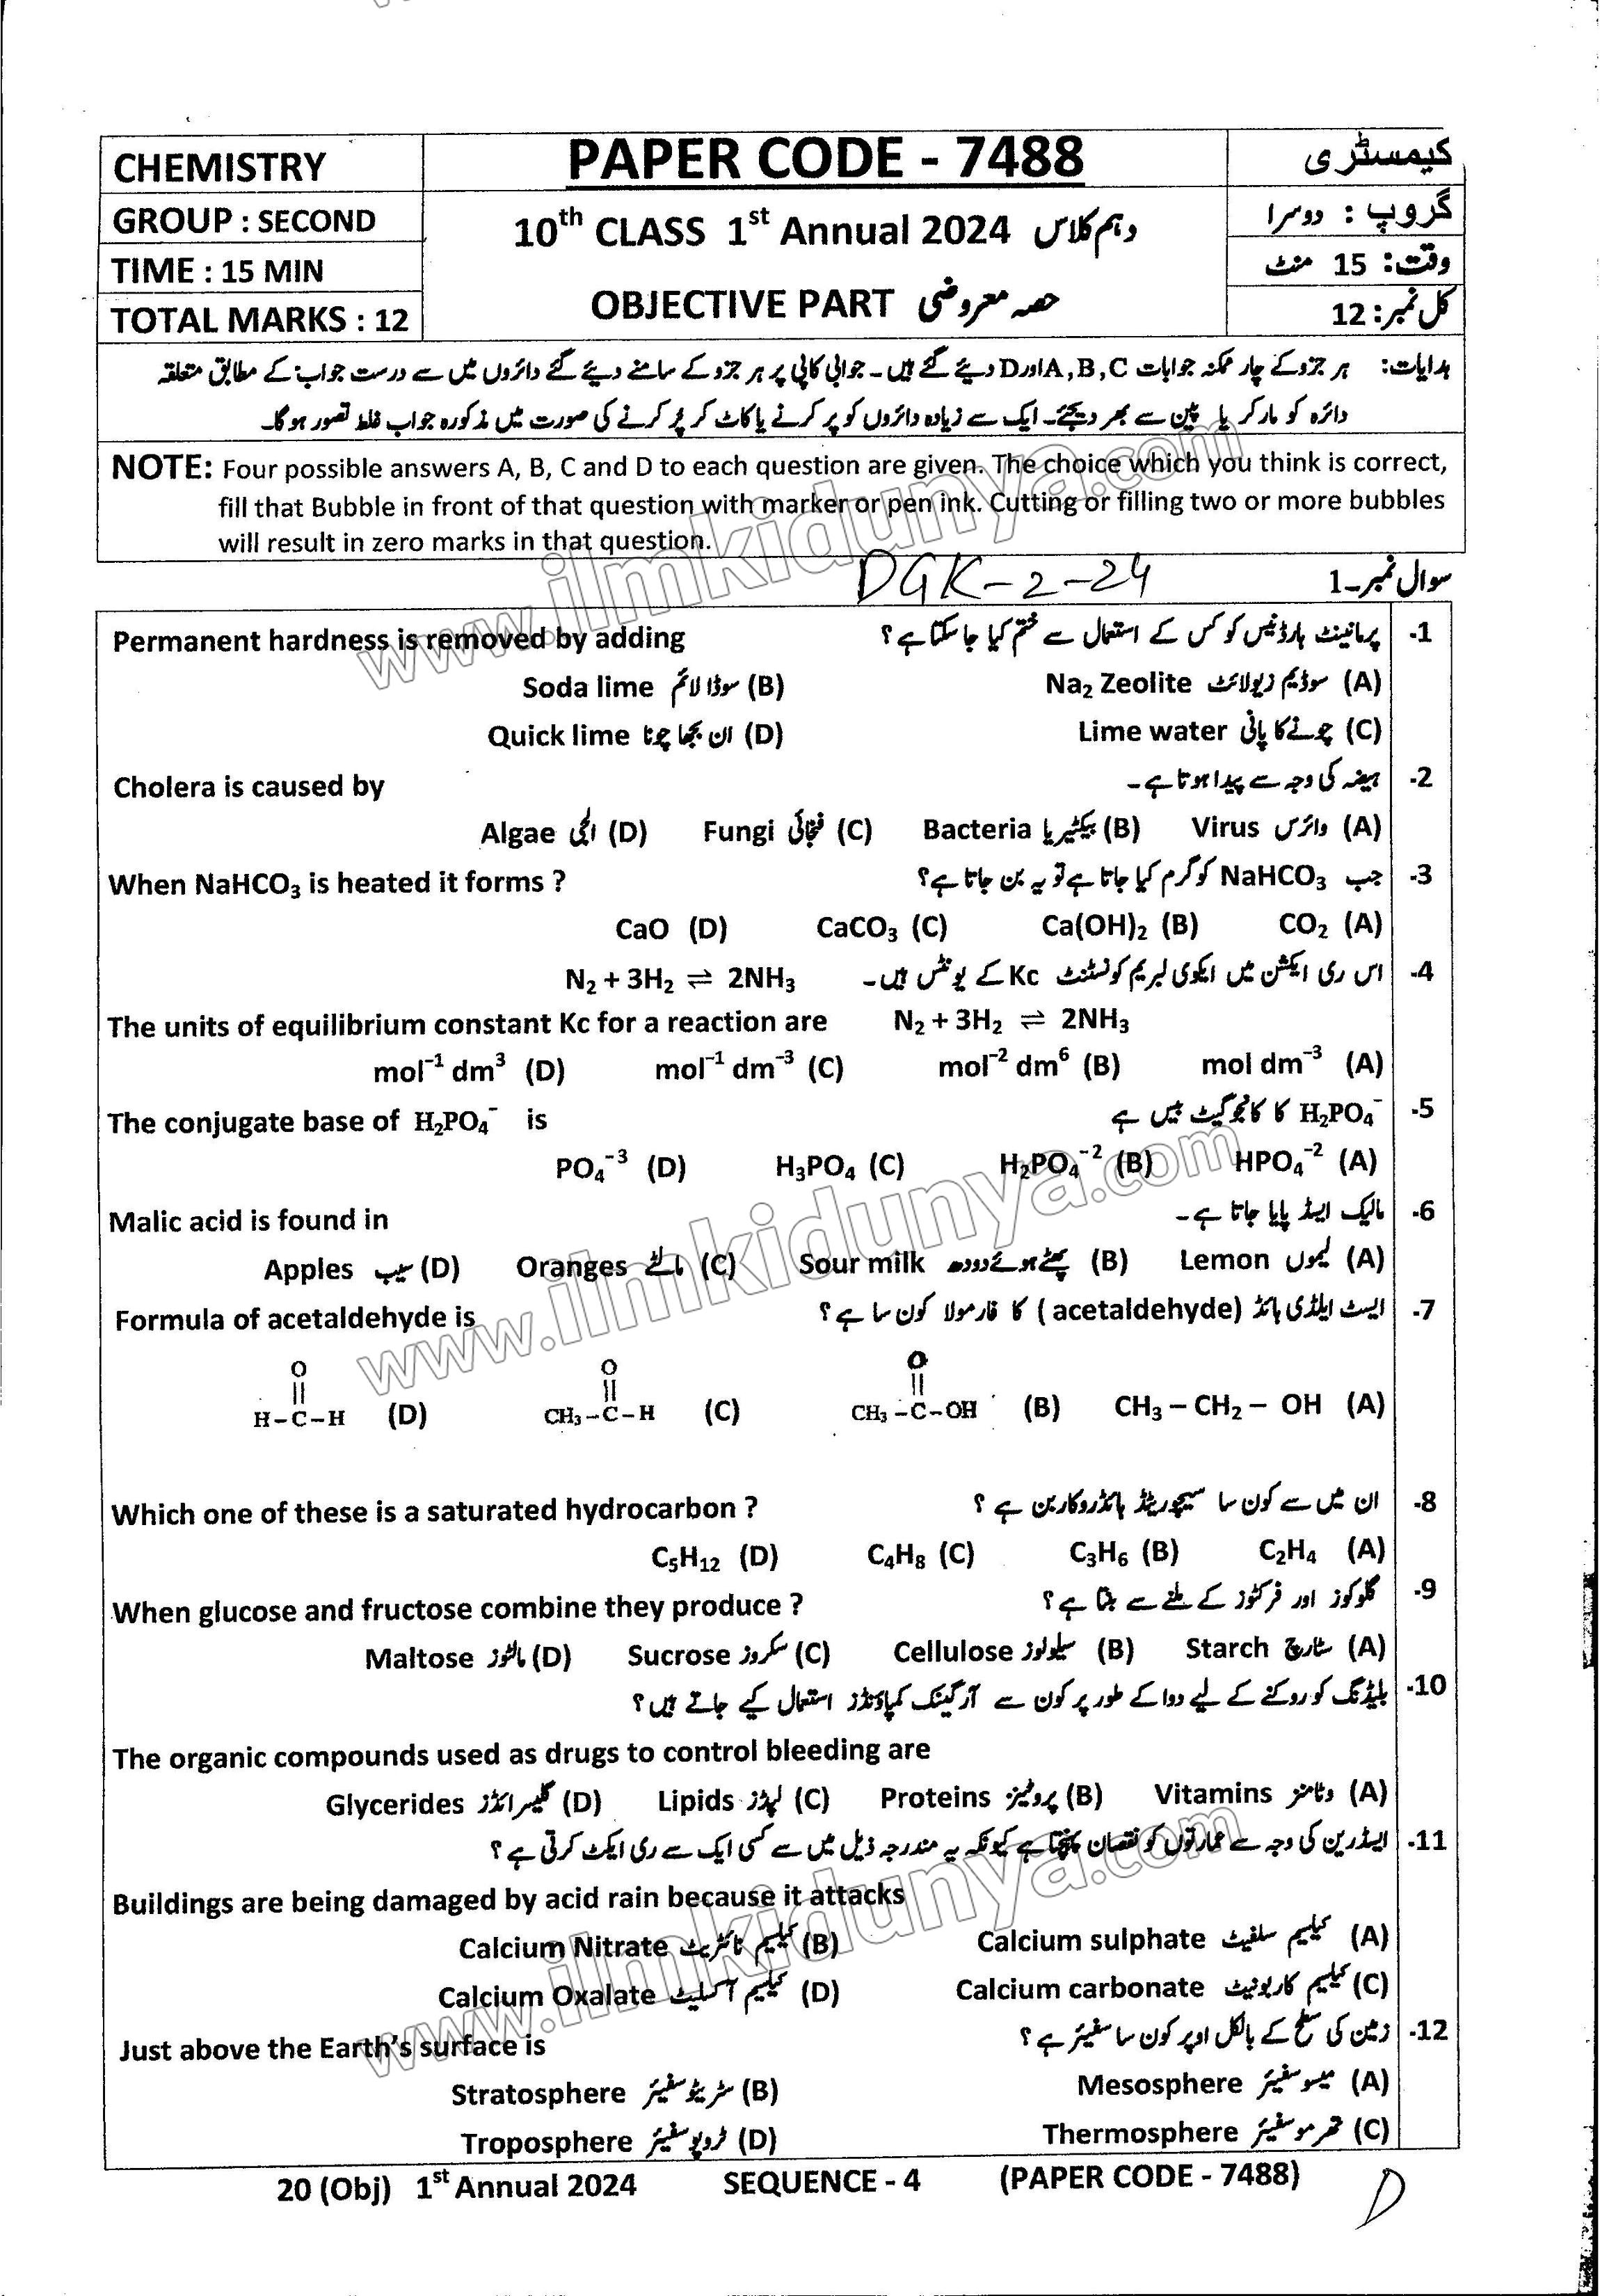 CHEMISTRY
PAPER CODE - 7488
کیمسٹری
GROUP : SECOND
10th CLASS 1st Annual 2024 دہم کلاس
گروپ : دوسرا
TIME : 15 MIN
وقت: 15 منٹ
OBJECTIVE PART حصہ معروضی
TOTAL MARKS : 12
کل نمبر: 12
ہدایات: ہر جزو کے چار ممکنہ جوابات A,B,C اور D دیئے گئے ہیں۔ جوابی کاپی پر ہر جزو کے سامنے دیئے گئے دائروں میں سے درست جواب کے مطابق متعلقہ
دائرہ کو مارکر یا پین سے بھر دیجئے۔ ایک سے زیادہ دائروں کو پر کرنے یا کاٹ کر پُر کرنے کی صورت میں مذکورہ جواب غلط تصور ہوگا۔
NOTE: Four possible answers A, B, C and D to each question are given. The choice which you think is correct,
fill that Bubble in front of that question with marker or pen ink. Cutting or filling two or more bubbles
will result in zero marks in that question.
DGK-2-24
سوال نمبر۔1
Permanent hardness is removed by adding پرمانینٹ ہارڈنیس کو کس کے استعمال سے ختم کیا جا سکتا ہے؟ -1
Soda lime سوڈا لائم (B) Na₂ Zeolite سوڈیم زیولائٹ (A)
Quick lime ان بجھا چونا (D) Lime water چونے کا پانی (C)
Cholera is caused by ہیضہ کی وجہ سے پیدا ہوتا ہے۔ -2
Algae الجی (D) Fungi فنجائی (C) Bacteria بیکٹیریا (B) Virus وائرس (A)
When NaHCO₃ is heated it forms ? جب NaHCO₃ کو گرم کیا جاتا ہے تو یہ بن جاتا ہے؟ -3
CaO (D) CaCO₃ (C) Ca(OH)₂ (B) CO₂ (A)
N₂ + 3H₂ ⇌ 2NH₃ اس ری ایکشن میں ایکوی لبریم کونسٹنٹ Kc کے یونٹس ہیں۔ -4
The units of equilibrium constant Kc for a reaction are N₂ + 3H₂ ⇌ 2NH₃
mol⁻¹ dm³ (D) mol⁻¹ dm⁻³ (C) mol⁻² dm⁶ (B) mol dm⁻³ (A)
The conjugate base of H₂PO₄⁻ is H₂PO₄⁻ کا کانجوگیٹ بیس ہے -5
PO₄⁻³ (D) H₃PO₄ (C) H₂PO₄⁻² (B) HPO₄⁻² (A)
Malic acid is found in مالیک ایسڈ پایا جاتا ہے۔ -6
Apples سیب (D) Oranges مالٹے (C) Sour milk پھٹے ہوئے دودھ (B) Lemon لیموں (A)
Formula of acetaldehyde is ایسٹ ایلڈی ہائڈ (acetaldehyde) کا فارمولا کون سا ہے؟ -7
O O O
|| || ||
H–C–H (D) CH₃–C–H (C) CH₃–C–OH (B) CH₃ – CH₂ – OH (A)
Which one of these is a saturated hydrocarbon ? ان میں سے کون سا سیچوریٹڈ ہائڈروکاربن ہے ؟ -8
C₅H₁₂ (D) C₄H₈ (C) C₃H₆ (B) C₂H₄ (A)
When glucose and fructose combine they produce ? گلوکوز اور فرکٹوز کے ملنے سے بنتا ہے؟ -9
Maltose مالٹوز (D) Sucrose سکروز (C) Cellulose سیلولوز (B) Starch سٹارچ (A)
بلیڈنگ کو روکنے کے لیے دوا کے طور پر کون سے آرگینک کمپاؤنڈز استعمال کیے جاتے ہیں؟ -10
The organic compounds used as drugs to control bleeding are
Glycerides گلیسرائڈز (D) Lipids لپڈز (C) Proteins پروٹینز (B) Vitamins وٹامنز (A)
ایسڈ رین کی وجہ سے عمارتوں کو نقصان پہنچتا ہے کیونکہ یہ مندرجہ ذیل میں سے کسی ایک سے ری ایکٹ کرتی ہے؟ -11
Buildings are being damaged by acid rain because it attacks
Calcium Nitrate کیلسیم نائٹریٹ (B) Calcium sulphate کیلسیم سلفیٹ (A)
Calcium Oxalate کیلسیم آکسلیٹ (D) Calcium carbonate کیلسیم کاربونیٹ (C)
Just above the Earth's surface is زمین کی سطح کے بالکل اوپر کون سا سفیئر ہے؟ -12
Stratosphere سٹریٹوسفیئر (B) Mesosphere میسوسفیئر (A)
Troposphere ٹروپوسفیئر (D) Thermosphere تھرموسفیئر (C)
20 (Obj) 1st Annual 2024 SEQUENCE - 4 (PAPER CODE - 7488)
D
www.ilmkidunya.com
www.ilmkidunya.com
www.ilmkidunya.com